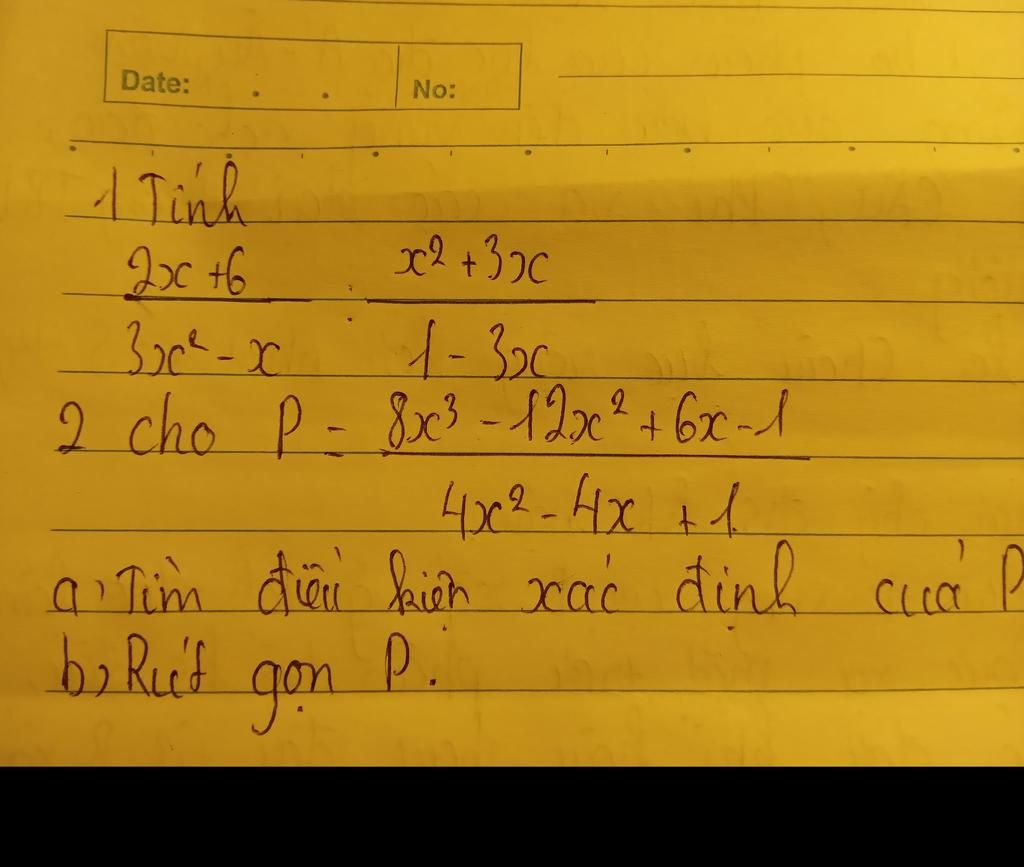 Date: . . No:
1 Tính
2x+6 / 3x² - x : x² + 3x / 1 - 3x
2 cho P = 8x³ - 12x² + 6x - 1 / 4x² - 4x + 1
a, Tìm điều kiện xác định của P
b, Rút gọn P.